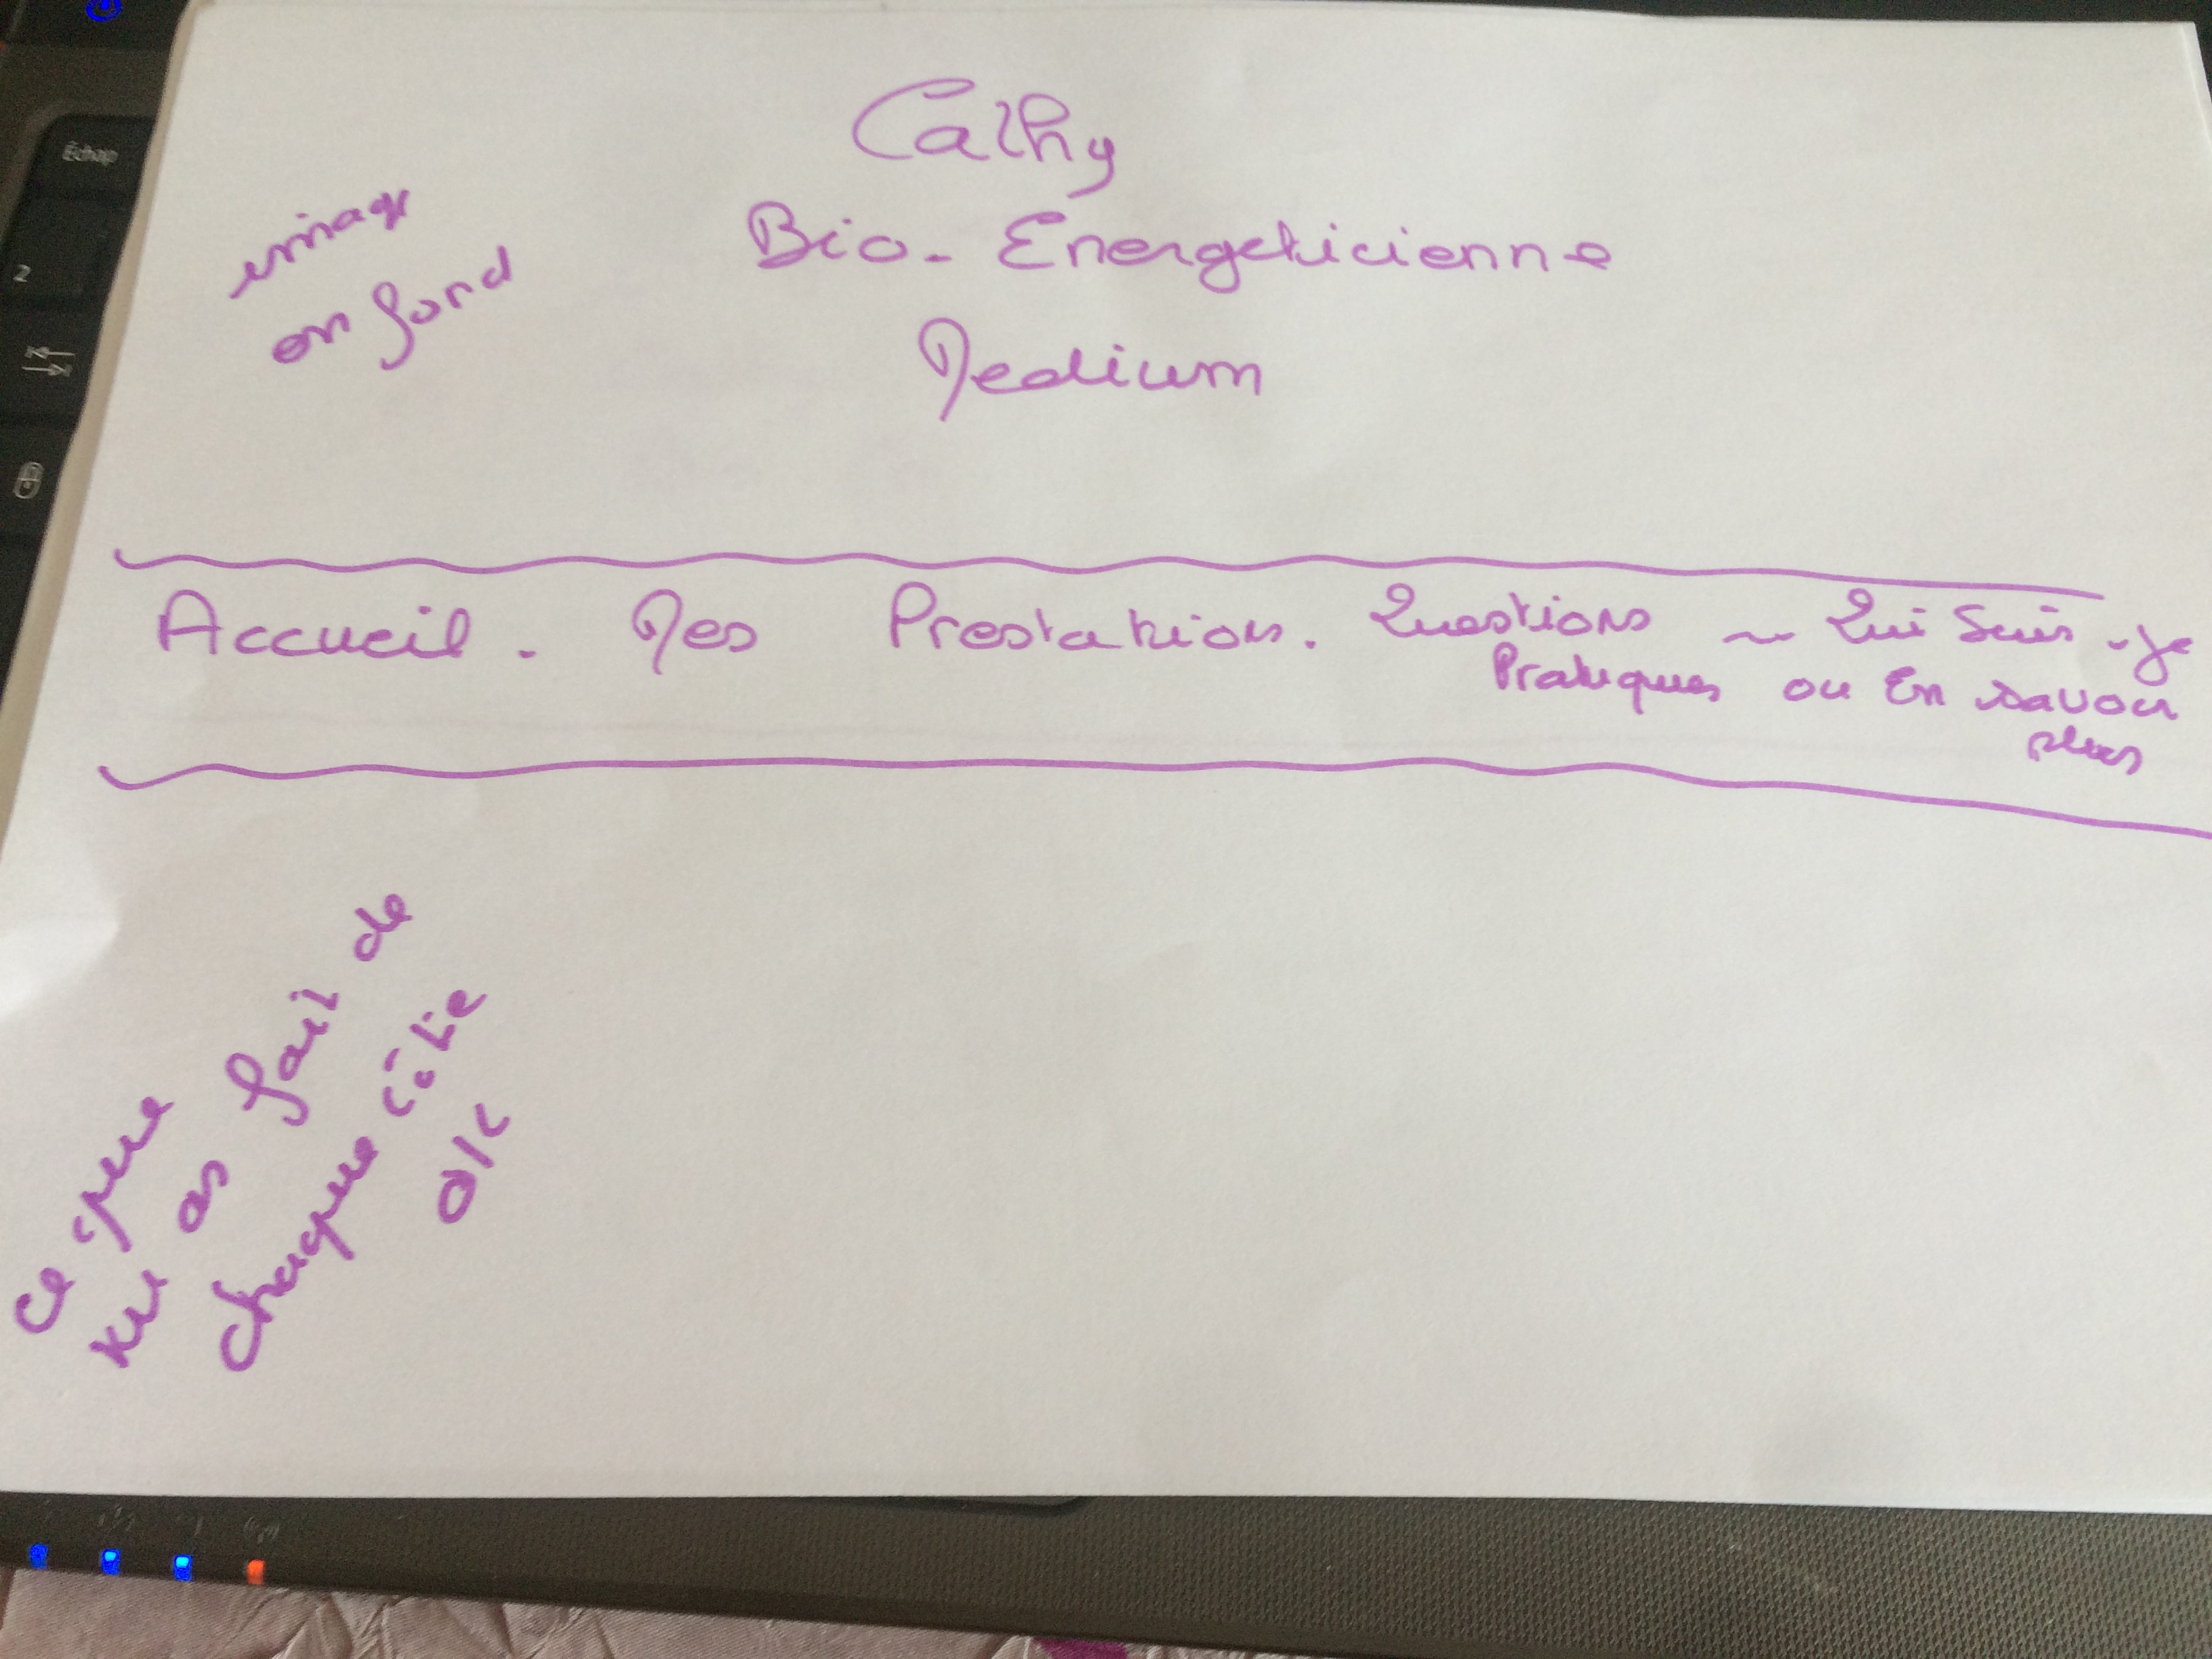 Cathy
Bio-Energeticienne
Medium
image
en fond
Accueil. Mes Prestations. Questions ~ Qui Suis-je
Pratiques ou En savoir
plus
ce que
tu as fait de
chaque côté
ok
Échap
2